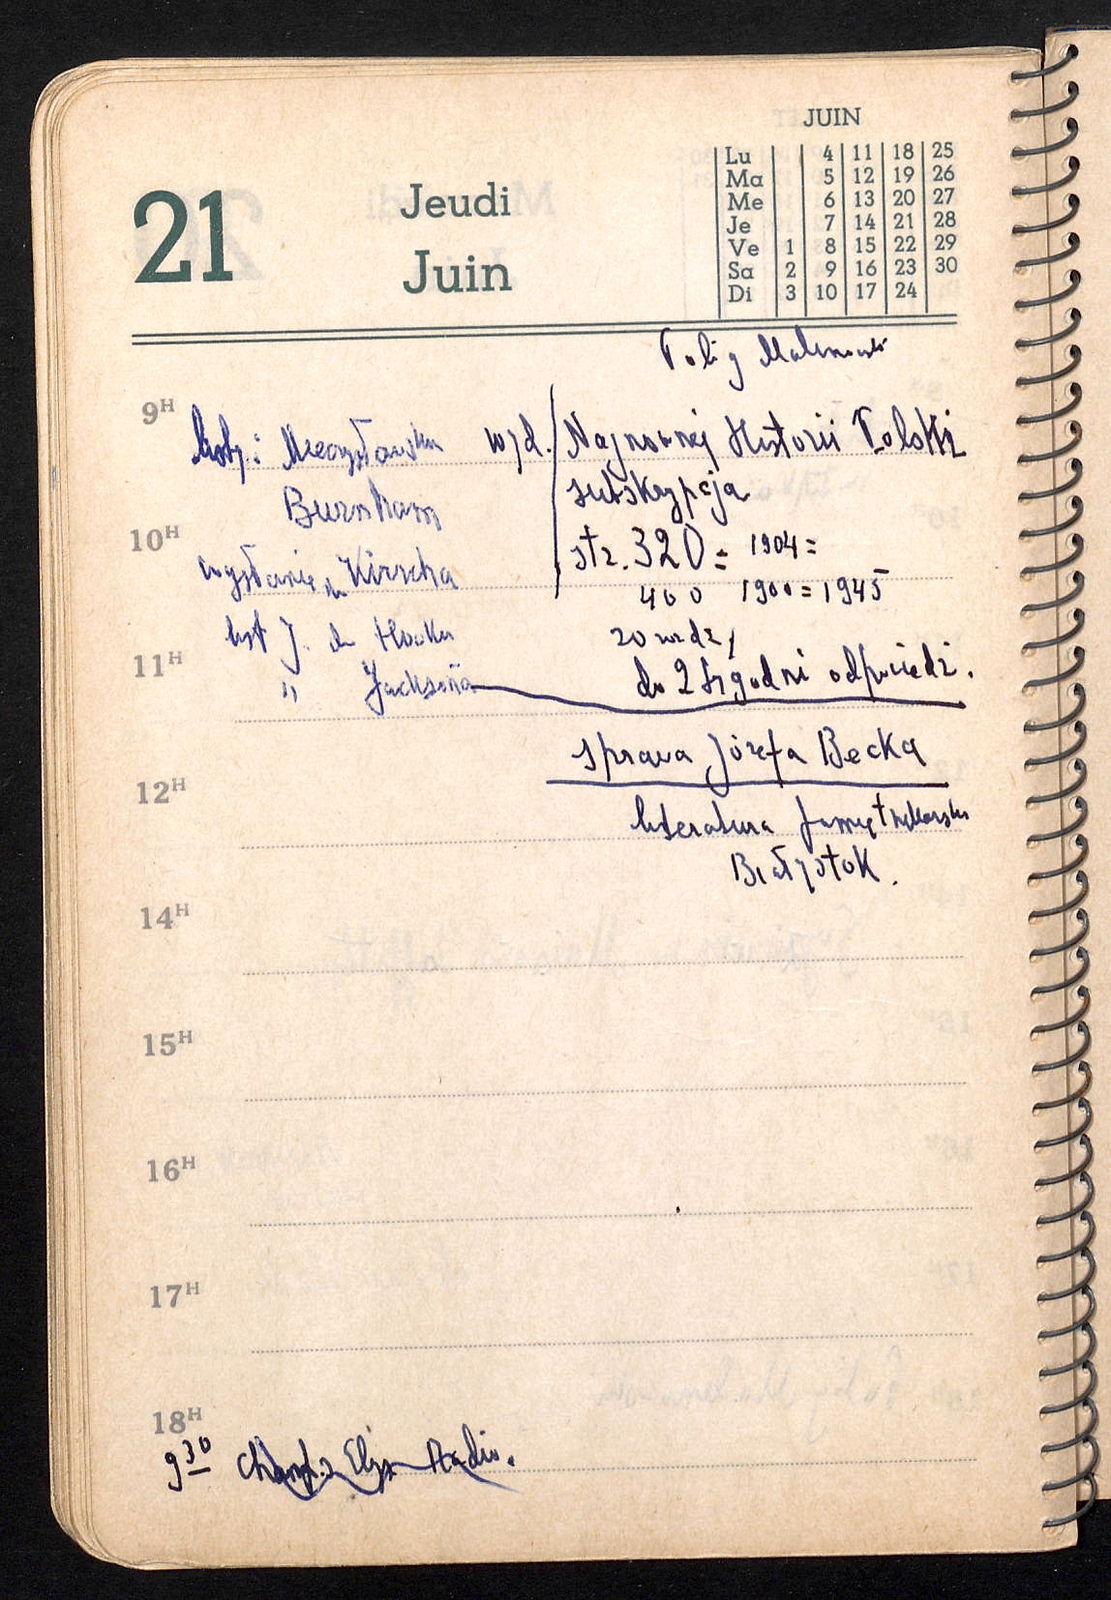 JUIN
Lu 4 11 18 25
Ma 5 12 19 26
Me 6 13 20 27
Je 7 14 21 28
Ve 1 8 15 22 29
Sa 2 9 16 23 30
Di 3 10 17 24
21 Jeudi
Juin
9H
listy: Mieczysławska wyd. Najnowszej Historii Polski
Burnham subskrypcja
10H
str. 320 = 1904 =
wysłanie Kirscha
400 1900 = 1945
list J. do
11H
" Jacksona do 2 tygodni odpowiedź.
sprawa Józefa Becka
12H
literatura pamiętnikarska
Białystok.
14H
15H
16H
17H
18H
9 30 Radio.